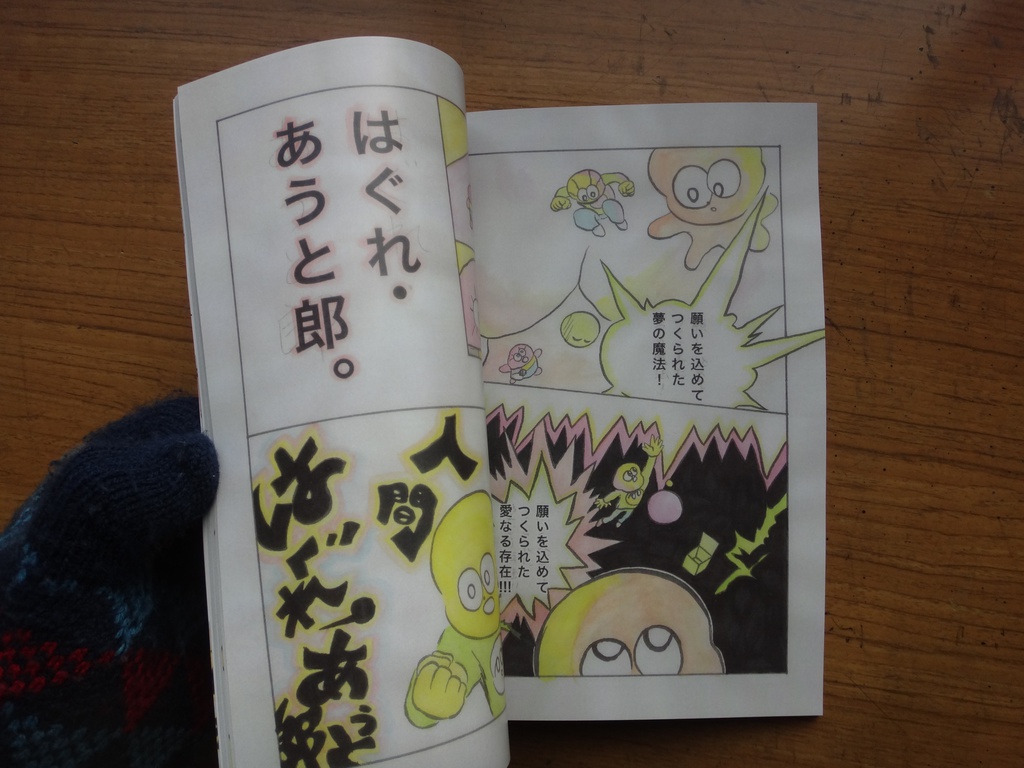 願いを込めて
つくられた
夢の魔法！
願いを込めて
つくられた
愛なる存在!!!
はぐれ・
あうと郎。
人間
はぐれ・あうと郎